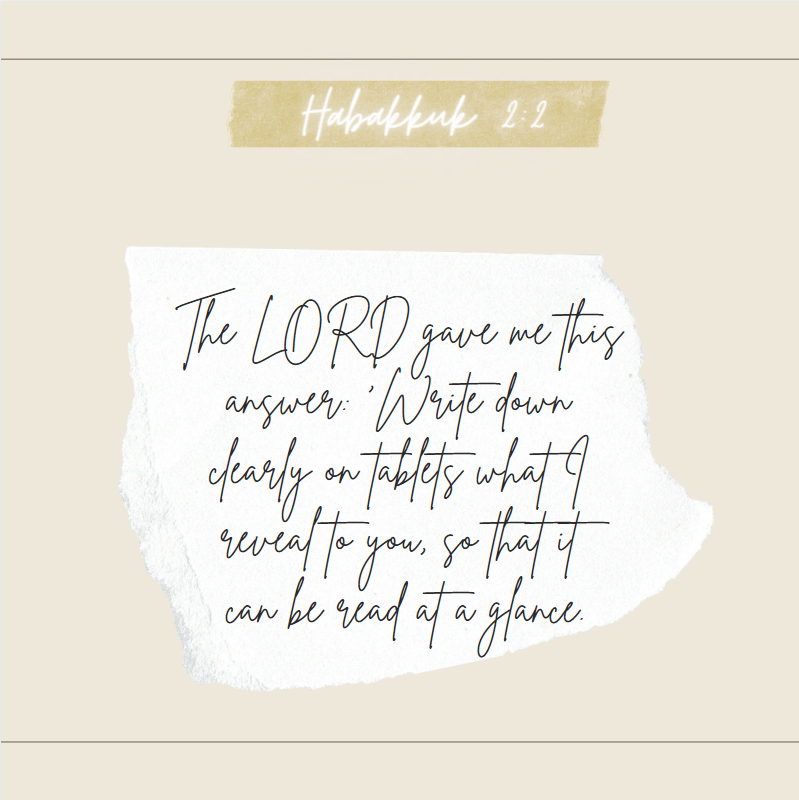 Habakkuk 2:2
The LORD gave me this
answer: 'Write down
clearly on tablets what I
reveal to you, so that it
can be read at a glance.